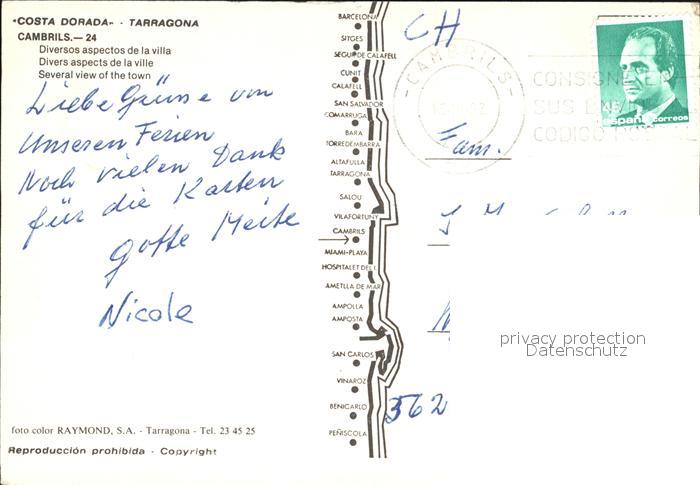 "COSTA DORADA" - TARRAGONA
CAMBRILS.— 24
Diversos aspectos de la villa
Divers aspects de la ville
Several view of the town
Liebe Grüsse von
Unseren Ferien
Noch vielen Dank
für die Karten
Gotte Meite
Nicole
foto color RAYMOND, S.A. - Tarragona - Tel. 23 45 25
Reproducción prohibida - Copyright
BARCELONA
SITGES
SEGUR DE CALAFELL
CUNIT
CALAFELL
SAN SALVADOR
COMARRUGA
BARA
TORREDEMBARRA
ALTAFULLA
TARRAGONA
SALOU
VILAFORTUNY
CAMBRILS
MIAMI-PLAYA
HOSPITALET DEL I.
AMETLLA DE MAR
AMPOLLA
AMPOSTA
SAN CARLOS
VINAROZ
BENICARLO
PEÑISCOLA
CH
CAMBRILS
CONSIGNE EN
SUS
CODIGO
45
españa correos
Fam.
562
privacy protection
Datenschutz